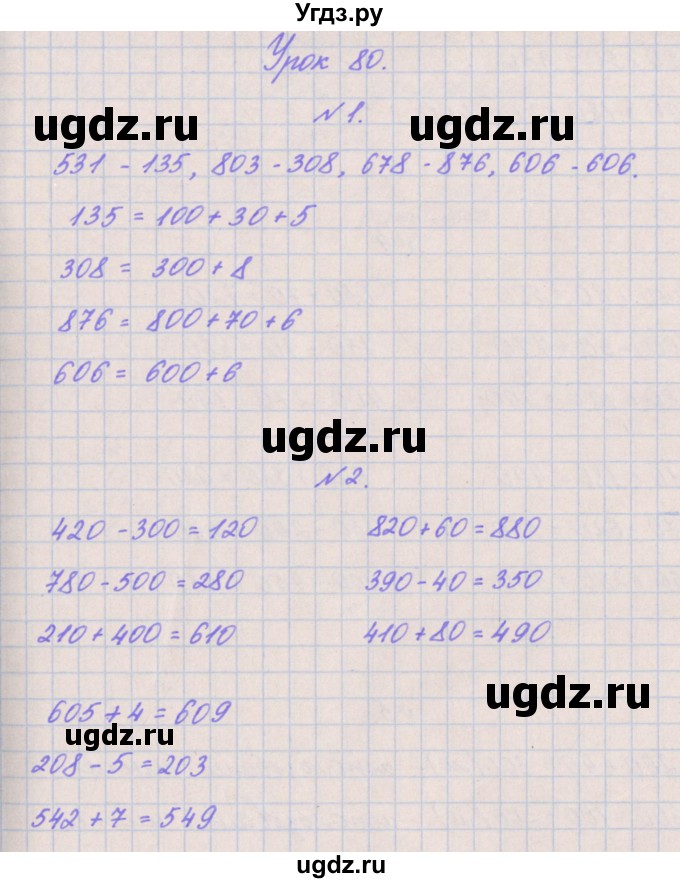 Угдз.ру
Урок 80.
ugdz.ru ugdz.ru
№1.
531 - 135, 803 - 308, 678 - 876, 606 - 606.
135 = 100 + 30 + 5
308 = 300 + 8
876 = 800 + 70 + 6
606 = 600 + 6
ugdz.ru
№2.
420 - 300 = 120
780 - 500 = 280
210 + 400 = 610
820 + 60 = 880
390 - 40 = 350
410 + 80 = 490
ugdz.ru
605 + 4 = 609
ugdz.ru
208 - 5 = 203
542 + 7 = 549
ugdz.ru